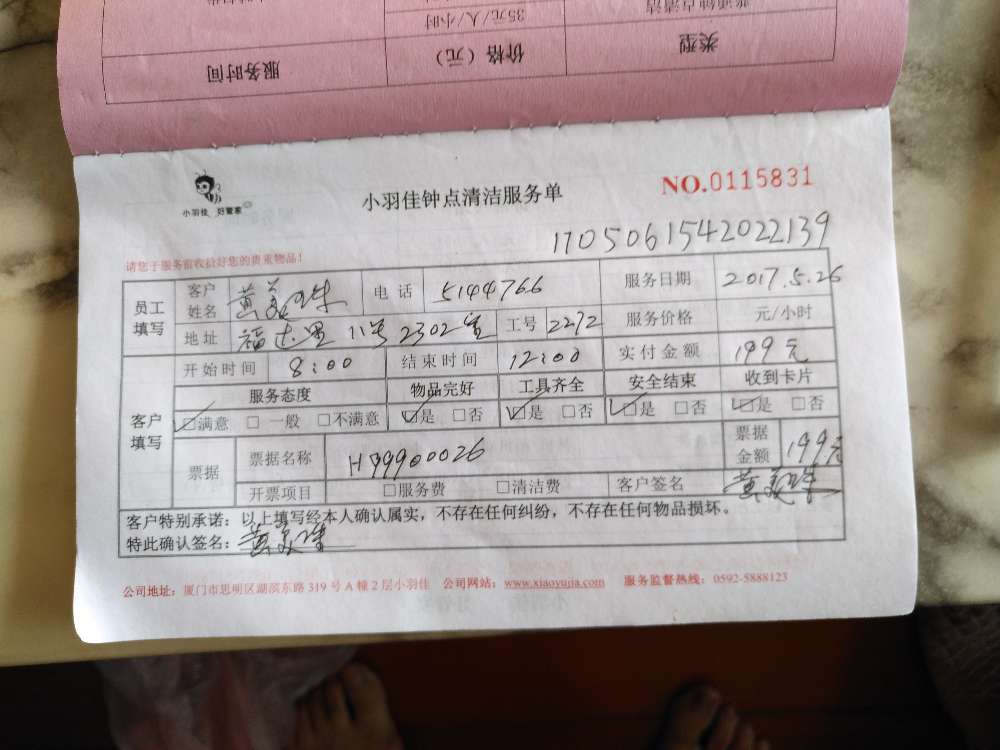 服务时间 价格（元） 类型
35元/人/小时 普通钟点清洁
小羽佳 好管家
小羽佳钟点清洁服务单
NO.0115831
1705061542022139
请您于服务前收拾好您的贵重物品！
员工填写 客户姓名 黄美珠 电话 5144766 服务日期 2017.5.26
地址 福达里11号2302室 工号 2272 服务价格 元/小时
开始时间 8:00 结束时间 12:00 实付金额 199元
客户填写 服务态度 物品完好 工具齐全 安全结束 收到卡片
☑满意 □一般 □不满意 ☑是 □否 ☑是 □否 ☑是 □否 ☑是 □否
票据 票据名称 H99900026 票据金额 199元
开票项目 □服务费 □清洁费 客户签名 黄美珠
客户特别承诺：以上填写经本人确认属实，不存在任何纠纷，不存在任何物品损坏。
特此确认签名：黄美珠
公司地址：厦门市思明区湖滨东路319号A幢2层小羽佳 公司网站：www.xiaoyujia.com 服务监督热线：0592-5888123